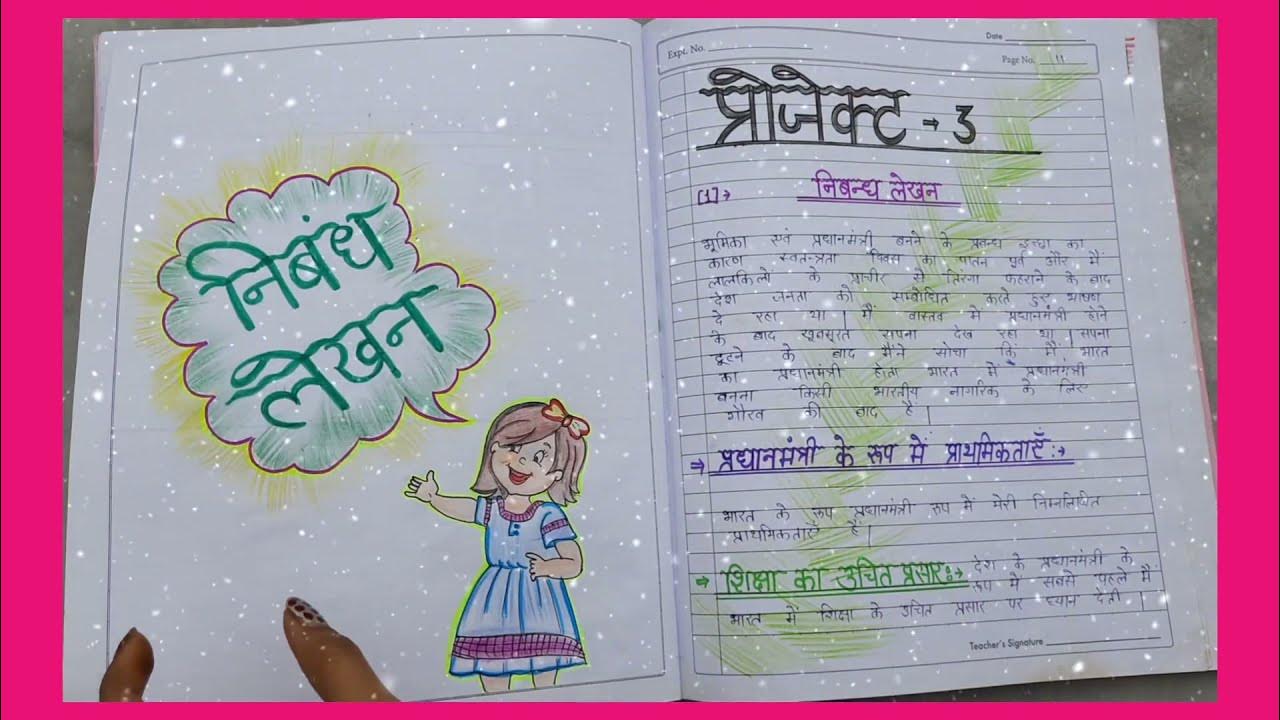 निबंध
लेखन
Expt. No.
Date
Page No. 11
प्रोजेक्ट → 3
[1]→ निबन्ध लेखन
भूमिका एवं प्रधानमंत्री बनने के प्रबन्ध इच्छा का
कारण स्वतन्त्रता दिवस का पालन पूर्व और मैं
लालकिलो के प्राचीर से तिरंगा फहराने के बाद
देश जनता को सम्बोधित करते हुए भाषण
दे रहा था | मैं वास्तव में प्रधानमंत्री होने
के बाद खूबसूरत सपना देख रहा था | सपना
टूटने के बाद मैंने सोचा कि मैं भारत
का प्रधानमंत्री होता भारत में प्रधानमंत्री
बनना किसी भारतीय नागरिक के लिए
गौरव की बाद है |
⇒ प्रधानमंत्री के रूप में प्राथमिकताएँ :→
भारत के रूप प्रधानमंत्री रूप में मेरी निम्नलिखित
प्राथमिकताएँ हैं |
⇒ शिक्षा का उचित प्रसार :→ देश के प्रधानमंत्री के
रूप में सबसे पहले मैं
भारत में शिक्षा के उचित प्रसार पर ध्यान देती |
Teacher's Signature